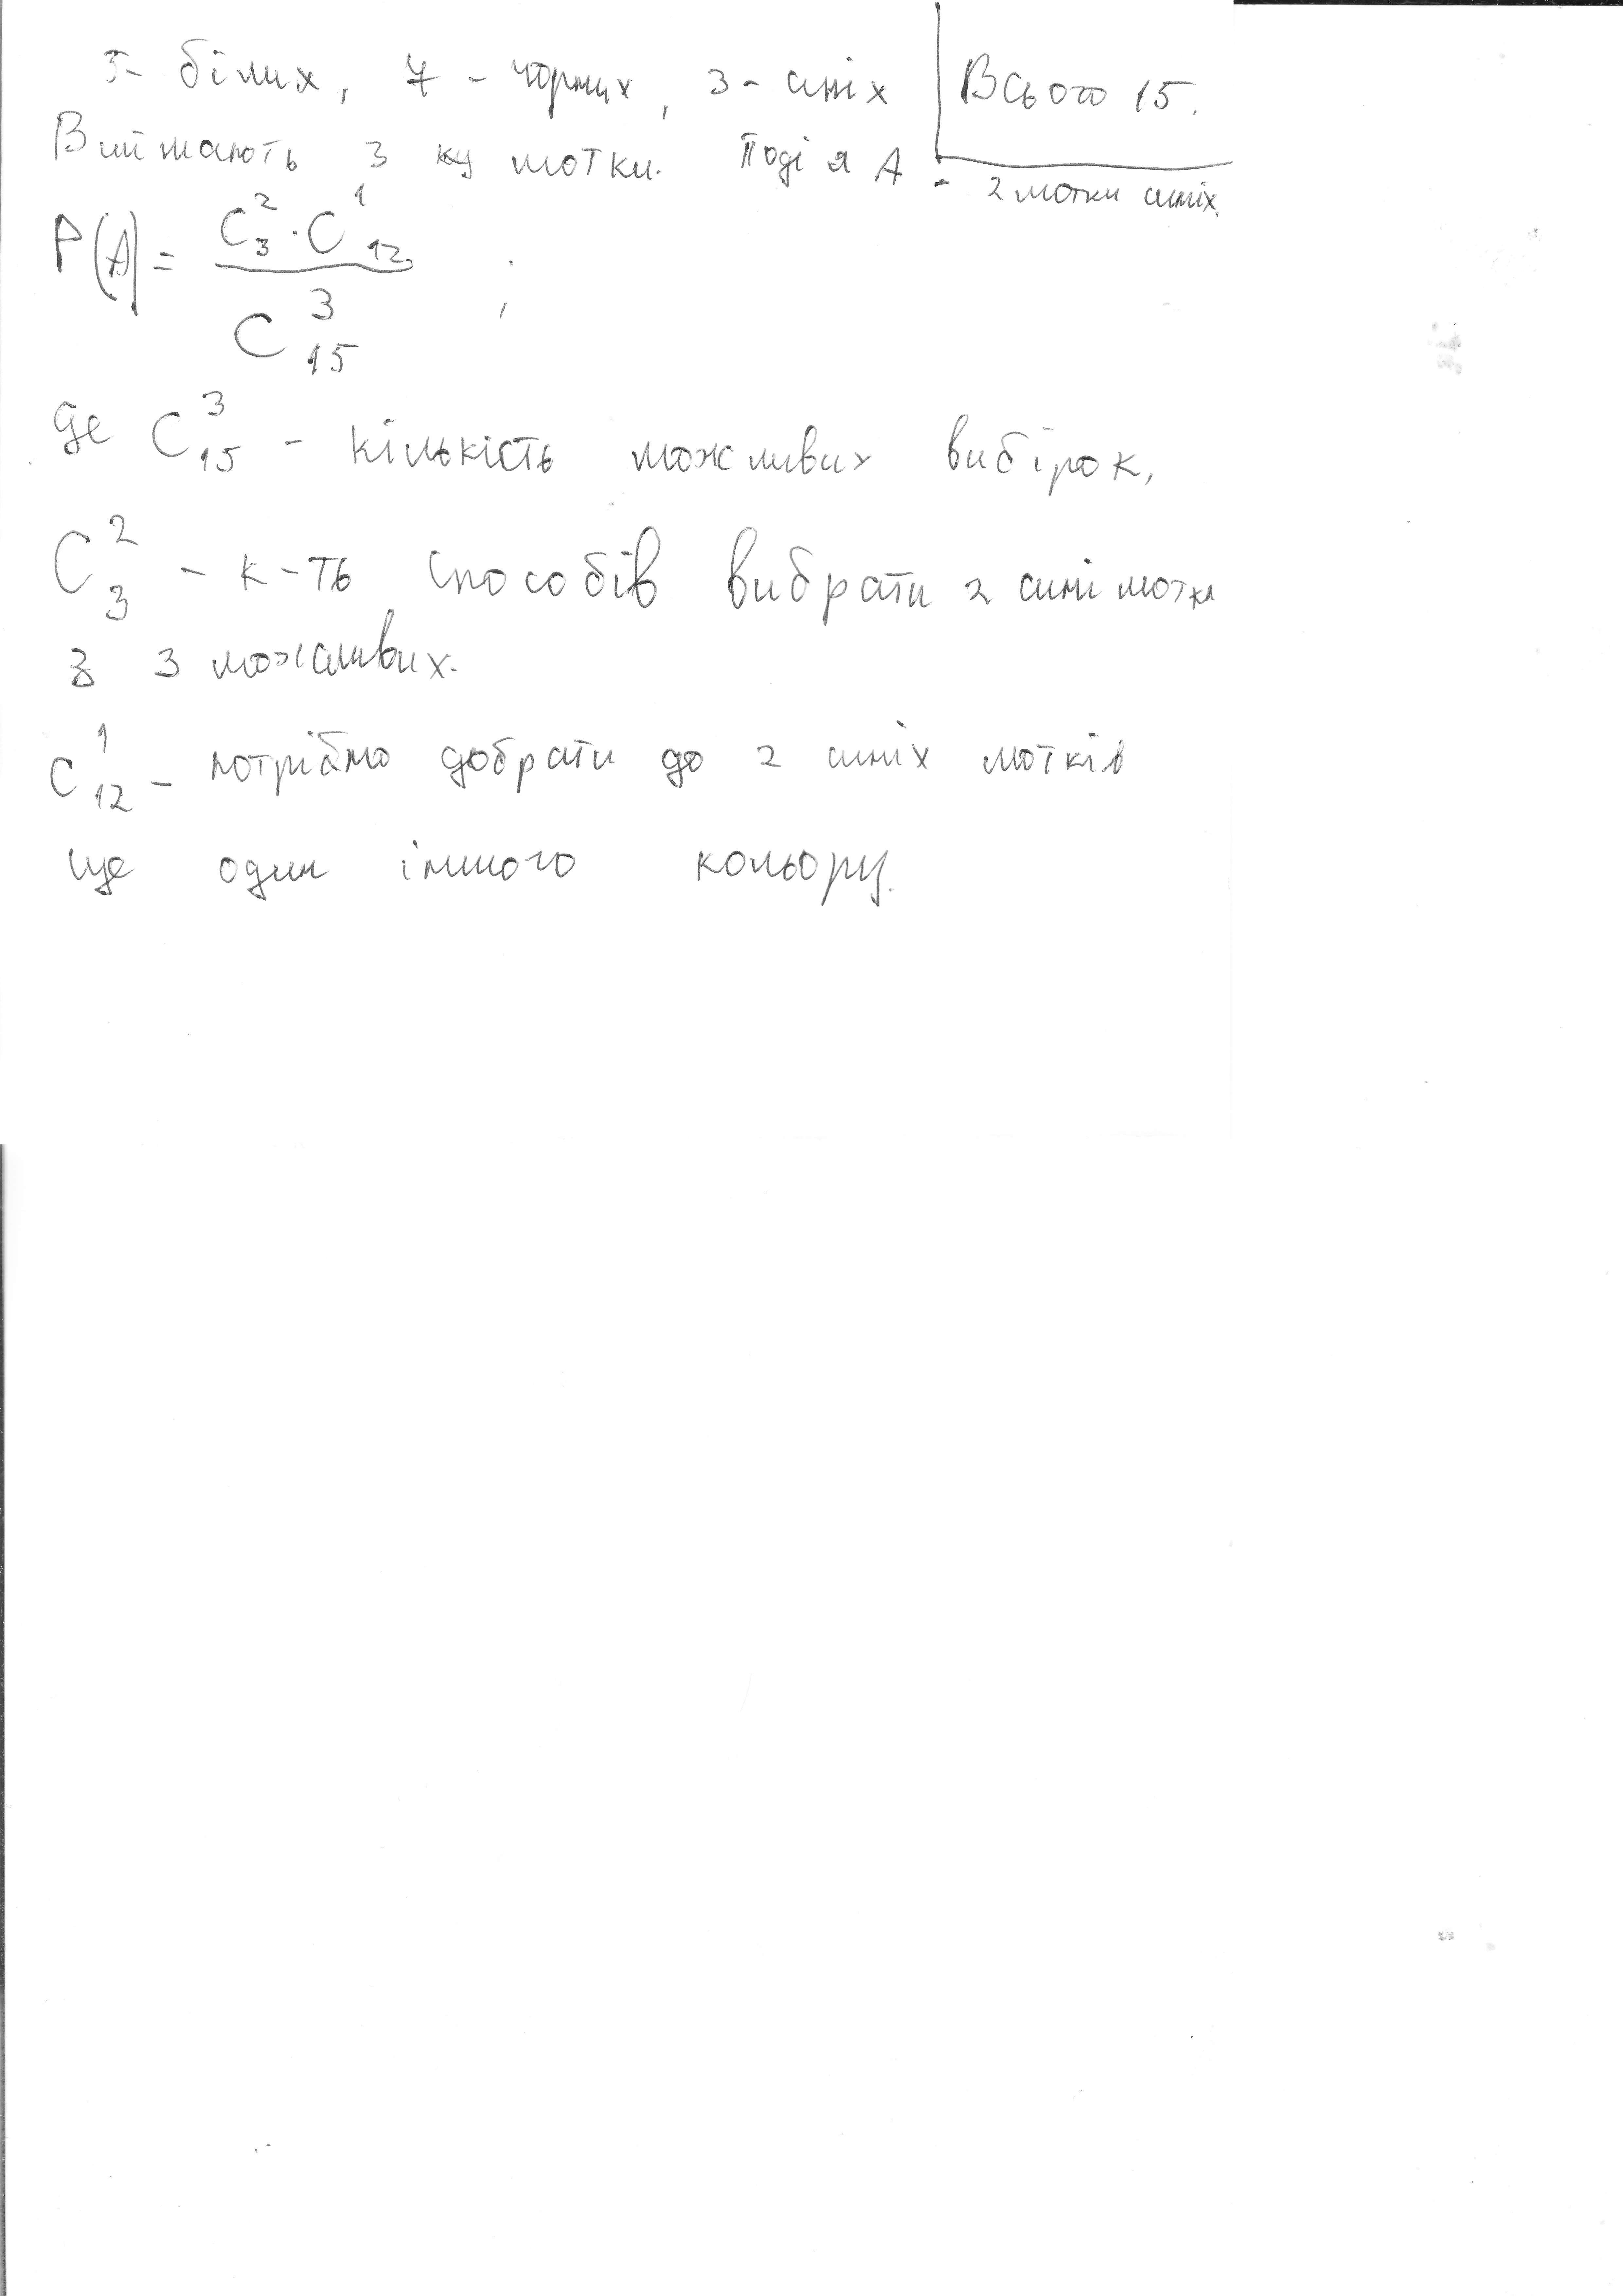 5- білих, 7 - чорних, 3 - синіх
Всього 15.
Виймають 3 мотки. Подія А - 2 мотки синіх.
P(A) = C²₃ · C¹₁₂ / C³₁₅ ;
де C³₁₅ - кількість можливих вибірок,
C²₃ - к-ть способів вибрати 2 сині мотки
з 3 можливих.
C¹₁₂ - потрібно добрати до 2 синіх мотків
ще один іншого кольору.